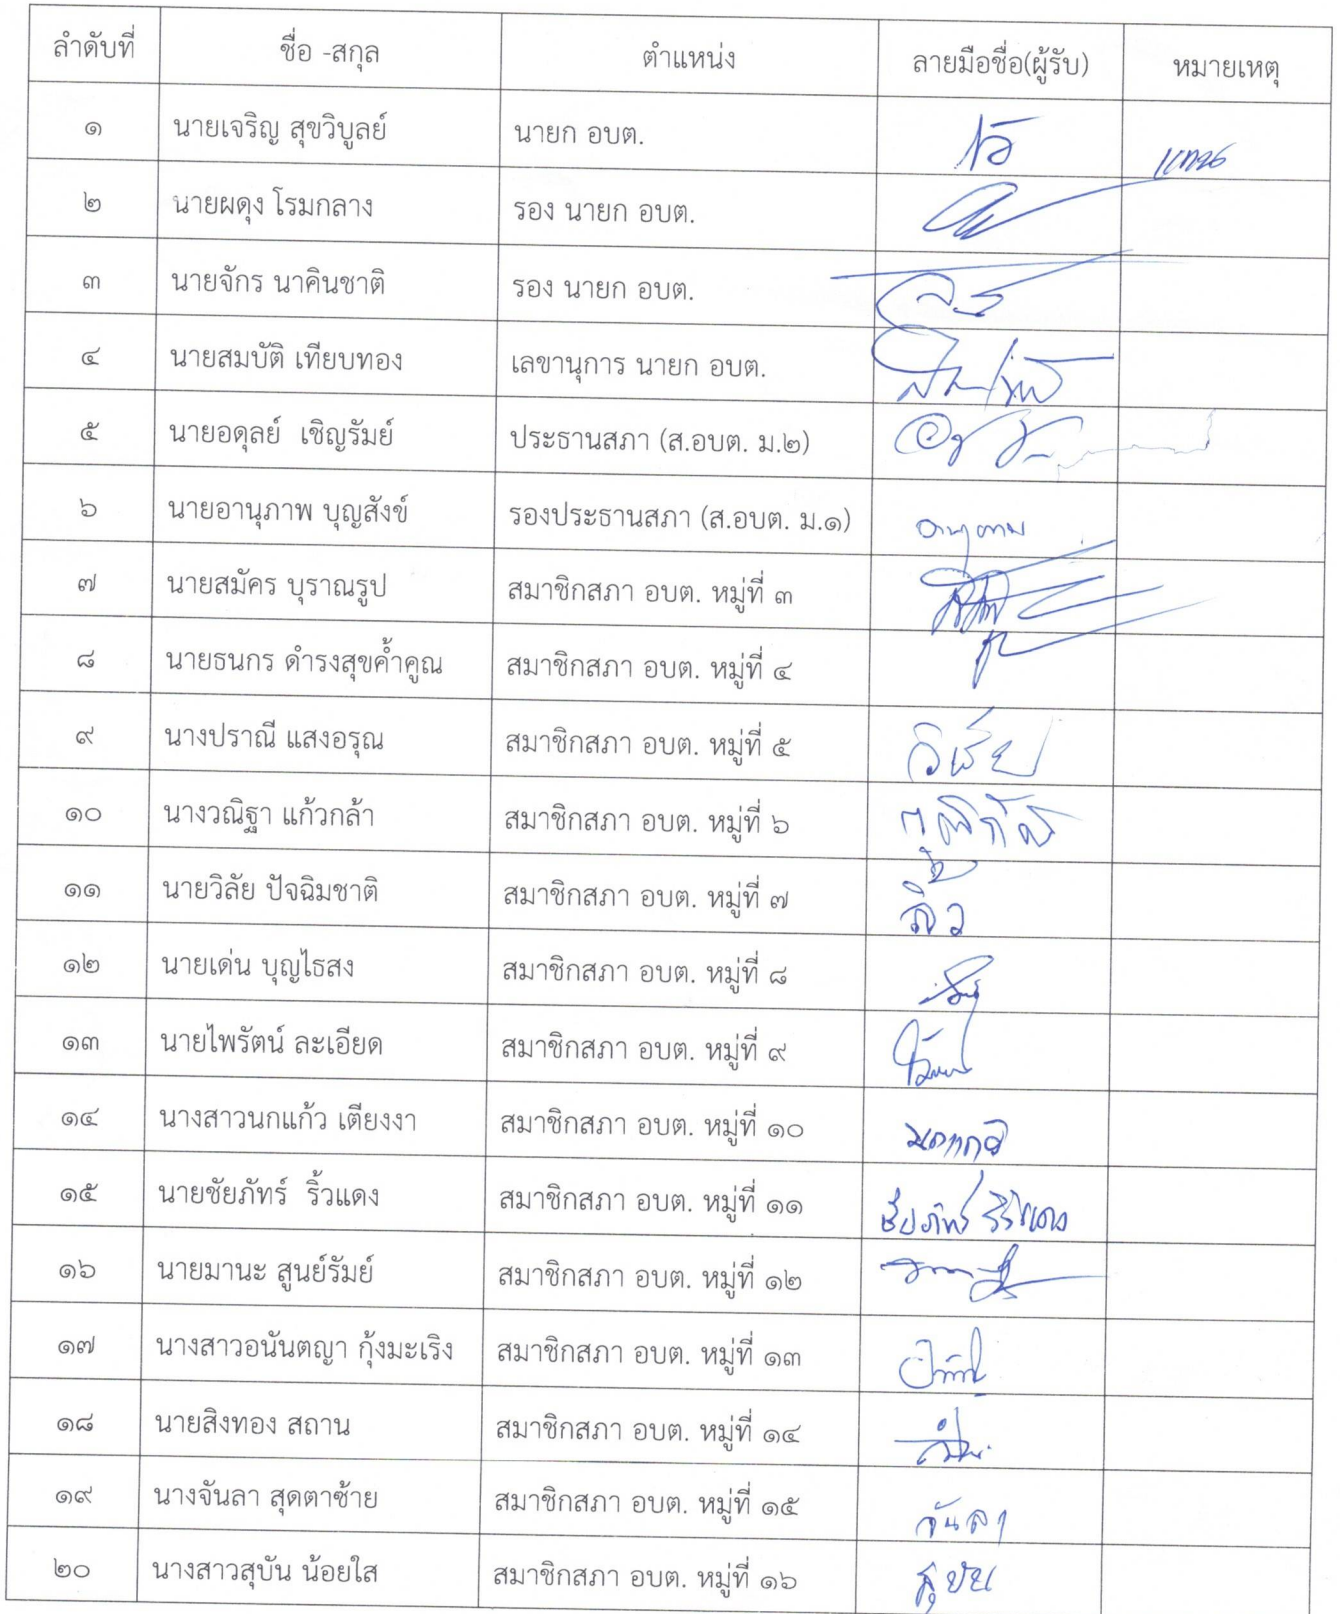 ลำดับที่ ชื่อ -สกุล ตำแหน่ง ลายมือชื่อ(ผู้รับ) หมายเหตุ
๑ นายเจริญ สุขวิบูลย์ นายก อบต. แทน
๒ นายผดุง โรมกลาง รอง นายก อบต.
๓ นายจักร นาคินชาติ รอง นายก อบต.
๔ นายสมบัติ เทียบทอง เลขานุการ นายก อบต.
๕ นายอดุลย์ เชิญรัมย์ ประธานสภา (ส.อบต. ม.๒)
๖ นายอานุภาพ บุญสังข์ รองประธานสภา (ส.อบต. ม.๑) อานุภาพ
๗ นายสมัคร บุราณรูป สมาชิกสภา อบต. หมู่ที่ ๓
๘ นายธนกร ดำรงสุขค้ำคูณ สมาชิกสภา อบต. หมู่ที่ ๔
๙ นางปราณี แสงอรุณ สมาชิกสภา อบต. หมู่ที่ ๕ วิชัย
๑๐ นางวณิฐา แก้วกล้า สมาชิกสภา อบต. หมู่ที่ ๖
๑๑ นายวิลัย ปัจฉิมชาติ สมาชิกสภา อบต. หมู่ที่ ๗
๑๒ นายเด่น บุญไธสง สมาชิกสภา อบต. หมู่ที่ ๘
๑๓ นายไพรัตน์ ละเอียด สมาชิกสภา อบต. หมู่ที่ ๙
๑๔ นางสาวนกแก้ว เตียงงา สมาชิกสภา อบต. หมู่ที่ ๑๐ นกแก้ว
๑๕ นายชัยภัทร์ ริ้วแดง สมาชิกสภา อบต. หมู่ที่ ๑๑ ชัยภัทร์ ริ้วแดง
๑๖ นายมานะ สูนย์รัมย์ สมาชิกสภา อบต. หมู่ที่ ๑๒
๑๗ นางสาวอนันตญา กุ้งมะเริง สมาชิกสภา อบต. หมู่ที่ ๑๓
๑๘ นายสิงทอง สถาน สมาชิกสภา อบต. หมู่ที่ ๑๔
๑๙ นางจันลา สุดตาซ้าย สมาชิกสภา อบต. หมู่ที่ ๑๕ จันลา
๒๐ นางสาวสุบัน น้อยใส สมาชิกสภา อบต. หมู่ที่ ๑๖ สุบัน